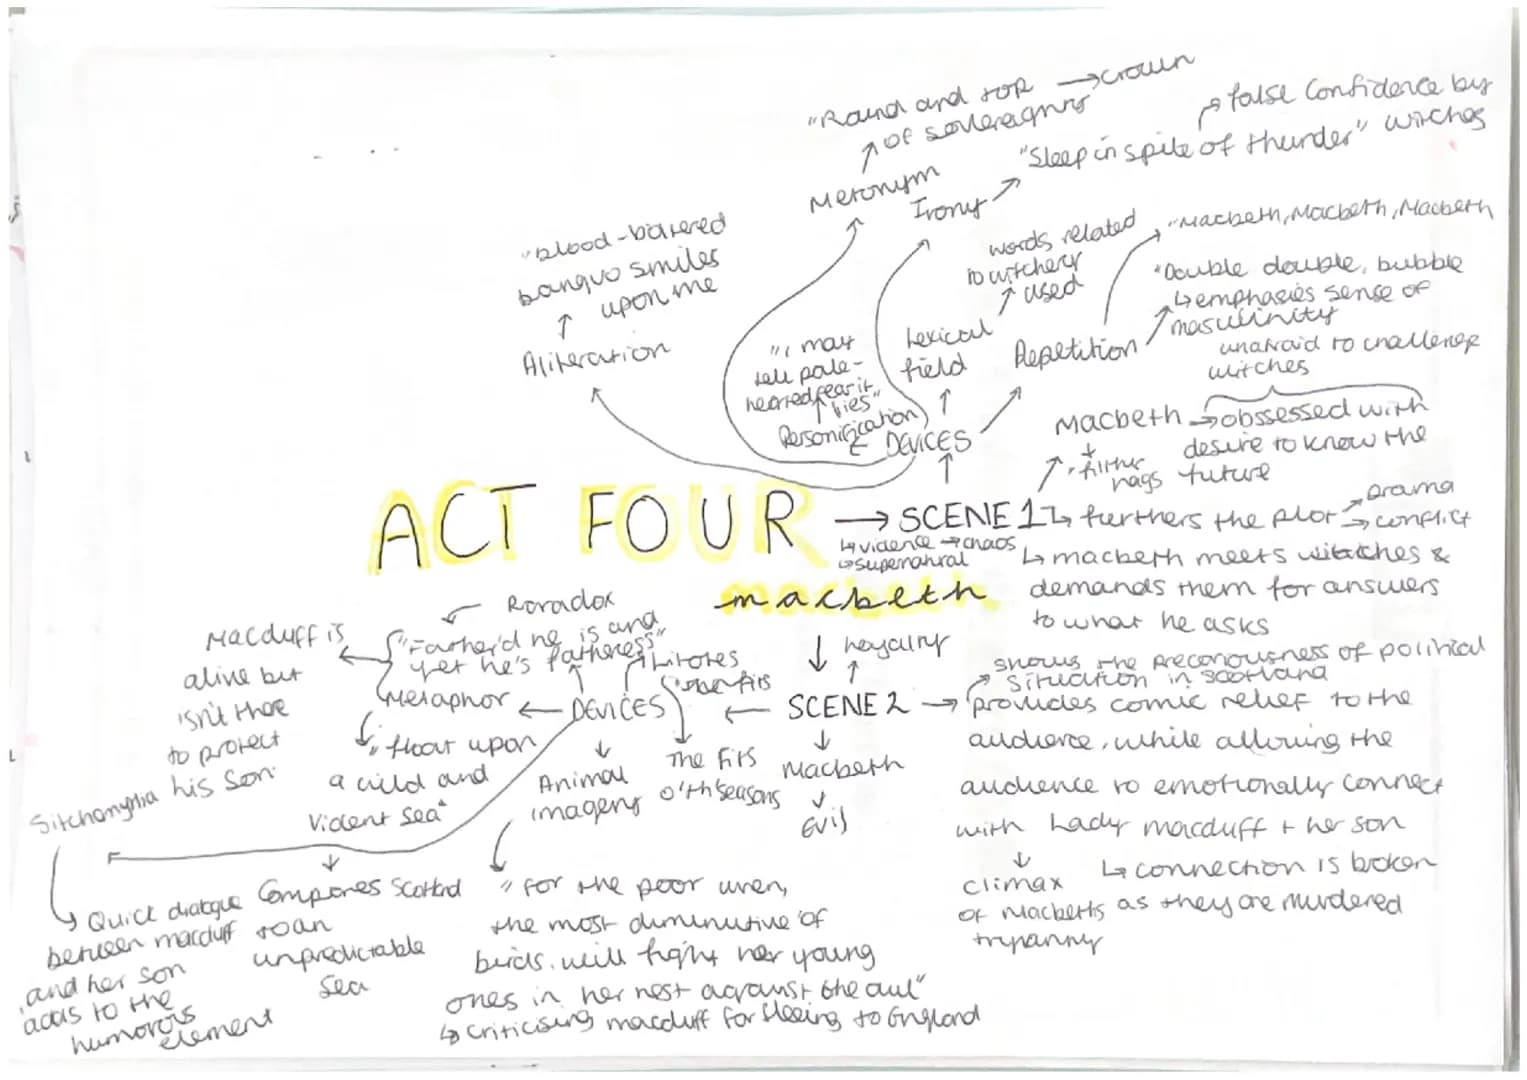 ACT FOUR
macbeth
→ SCENE 1
↳ violence → chaos
↳ supernatural
DEVICES
Aliteration
"blood-boltered
banquo smiles
upon me
Metonym
"Round and top
of sovereignty
→ crown
Irony
"Sleep in spite of thunder"
false confidence by
witches
Personification
"i may
tell pale-
hearted fear it
lies"
Lexical
field
words related
to witchery
used
Repetition
"Macbeth, Macbeth, Macbeth
"Double double, bubble
↳ emphasies sense of
masculinity
unafraid to challenge
witches
Macbeth → obssessed with
desire to know the
future
"filthy
hags
↳ furthers the plot → Drama
→ conflict
↳ macbeth meets witches &
demands them for answers
to what he asks
SCENE 2
loyalty
Macbeth
Evil
shows the precariousness of political
situation in scotland
provides comic relief to the
audience, while allowing the
audience to emotionally connect
with Lady macduff + her son
↳ connection is broken
as they are murdered
climax
of Macbeths
tryanny
DEVICES
Litotes
The fits
o'th'seasons
Paradox
"Farther'd he is and
yet he's fatherless"
Macduff is
alive but
isn't there
to protect
his son
Metaphor
"float upon
a wild and
violent sea"
Compares Scotland
to an
unpredictable
sea
Animal
imagery
"for the poor wren,
the most dumunutive of
birds. will fight her young
ones in her nest against the owl"
↳ criticising macduff for fleeing to England
Sitchomythia
Quick dialogue
between macduff
and her son
adds to the
humorous
element